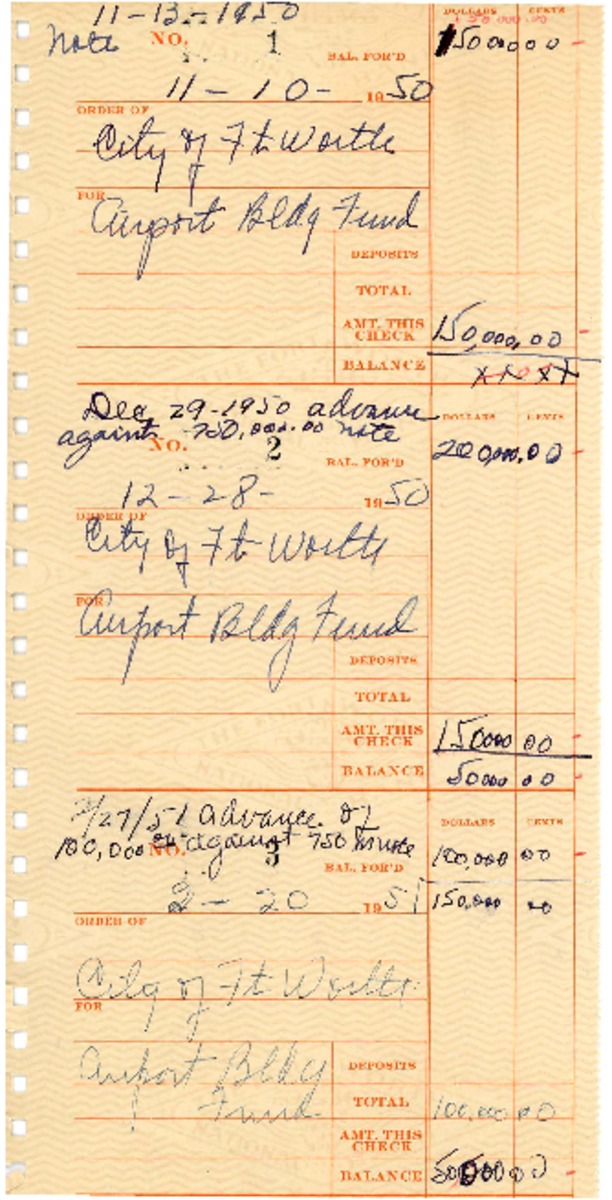 11-13-1950
DOLLARS CENTS
150,000.00
Note NO. 1 BAL. FOR'D 150,000 0
11-10- 1950
ORDER OF
City of Ft Worth
FOR
Airport Bldg Fund
DEPOSITS
TOTAL
AMT. THIS CHECK 150,000.00
BALANCE
Dec 29-1950 advance
DOLLARS CENTS
against 750,000.00 note
NO. 2 BAL. FOR'D 200,000.00
12-28- 1950
ORDER OF
City of Ft Worth
FOR
Airport Bldg Fund
DEPOSITS
TOTAL
AMT. THIS CHECK 150000 00
BALANCE 50000 00
2/27/51 advance of
DOLLARS CENTS
100,000 against 750 M note
NO. 3 BAL. FOR'D 100,000 00
2-20 1951 150,000 00
ORDER OF
City of Ft Worth
FOR
Airport Bldg
Fund
DEPOSITS
TOTAL 100,000 00
AMT. THIS CHECK
BALANCE 50000 00